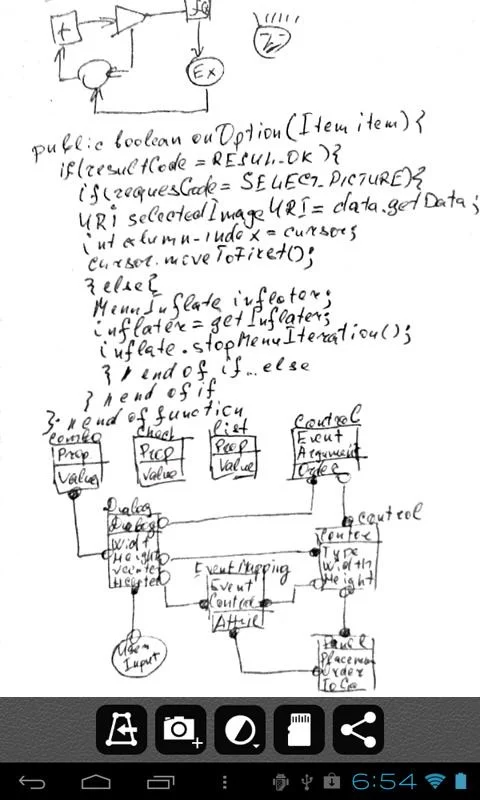 +
fa
Ex
public boolean onOption(Item item){
if(resultCode = RESUL_OK){
if(requesCode = SELECT_PICTURE){
URi selectedImageURI = data.getData;
int column_index = cursor;
cursor.moveToFirst();
}else{
MenuInflate inflater;
inflater = getInflater;
inflate.stopMenuIteration();
} // end of if...else
} // end of if
}; // end of function
Combo
Prop
Value
Check
Prop
Value
List
Prop
Value
Control
Event
Argument
Order
Dialog
Dialog
Width
Height
Vcenter
Hcenter
Control
Contex
Type
Width
Height
Event Mapping
Event
Control
Attrib
User
Input
Panel
Placemen
Order
6:54